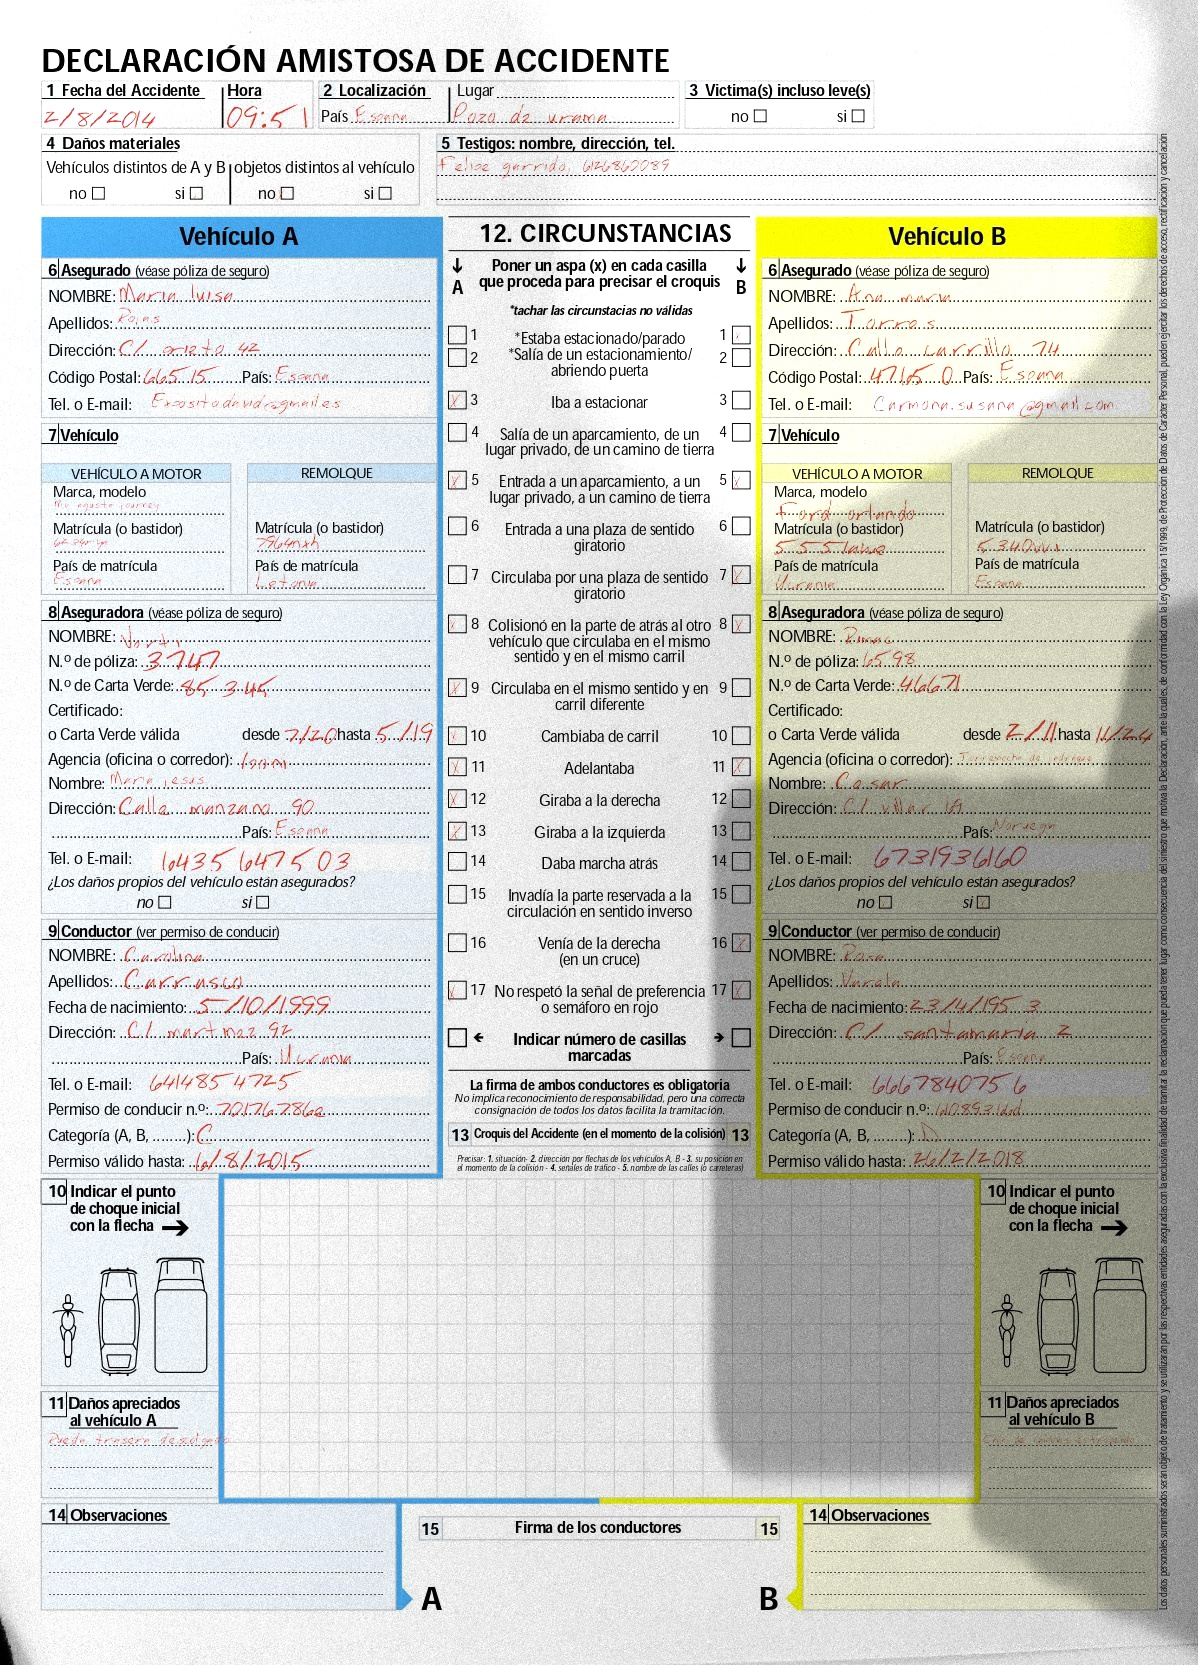 DECLARACIÓN AMISTOSA DE ACCIDENTE
1 Fecha del Accidente Hora 2 Localización Lugar 3 Victima(s) incluso leve(s)
2/8/2014 09:51 País España Pozo de urama no si
4 Daños materiales 5 Testigos: nombre, dirección, tel.
Vehículos distintos de A y B objetos distintos al vehículo Felipe garrido, 626860089
no si no si
Vehículo A
6 Asegurado (véase póliza de seguro)
NOMBRE: Maria luisa
Apellidos: Rojas
Dirección: C/. prieto 42
Código Postal: 66515 País: España
Tel. o E-mail: Expositodavid@gmail.es
7 Vehículo
VEHÍCULO A MOTOR REMOLQUE
Marca, modelo
Mv agusta journey
Matrícula (o bastidor) Matrícula (o bastidor)
7964nxh
País de matrícula País de matrícula
España Letonia
8 Aseguradora (véase póliza de seguro)
NOMBRE:
N.º de póliza: 3747
N.º de Carta Verde: 85 345
Certificado:
o Carta Verde válida desde 7/20 hasta 5/19
Agencia (oficina o corredor):
Nombre: Maria jesus
Dirección: Calle manzano 90
País: España
Tel. o E-mail: 6435647503
¿Los daños propios del vehículo están asegurados?
no si
9 Conductor (ver permiso de conducir)
NOMBRE: Carolina
Apellidos: Carrasco
Fecha de nacimiento: 5/10/1999
Dirección: C/. martinez 92
País: Ucrania
Tel. o E-mail: 6414854725
Permiso de conducir n.º: 70176786a
Categoría (A, B, ........): C
Permiso válido hasta: 6/8/2015
10 Indicar el punto
de choque inicial
con la flecha
11 Daños apreciados
al vehículo A
Puerta trasera descolgada
14 Observaciones
12. CIRCUNSTANCIAS
Poner un aspa (x) en cada casilla
A que proceda para precisar el croquis B
*tachar las circunstacias no válidas
1 *Estaba estacionado/parado 1 x
2 *Salía de un estacionamiento/ 2
abriendo puerta
x 3 Iba a estacionar 3
4 Salía de un aparcamiento, de un 4
lugar privado, de un camino de tierra
x 5 Entrada a un aparcamiento, a un 5 x
lugar privado, a un camino de tierra
6 Entrada a una plaza de sentido 6
giratorio
7 Circulaba por una plaza de sentido 7 x
giratorio
x 8 Colisionó en la parte de atrás al otro 8 x
vehículo que circulaba en el mismo
sentido y en el mismo carril
x 9 Circulaba en el mismo sentido y en 9
carril diferente
x 10 Cambiaba de carril 10
x 11 Adelantaba 11 x
x 12 Giraba a la derecha 12
x 13 Giraba a la izquierda 13
14 Daba marcha atrás 14
15 Invadía la parte reservada a la 15
circulación en sentido inverso
16 Venía de la derecha 16 x
(en un cruce)
x 17 No respetó la señal de preferencia 17 x
o semáforo en rojo
Indicar número de casillas
marcadas
La firma de ambos conductores es obligatoria
No implica reconocimiento de responsabilidad, pero una correcta
consignación de todos los datos facilita la tramitación.
13 Croquis del Accidente (en el momento de la colisión) 13
Precisar: 1. situación- 2. dirección por flechas de los vehículos A, B - 3. su posición en
el momento de la colisión - 4. señales de tráfico - 5. nombre de las calles (o carreteras)
15 Firma de los conductores 15
A B
Vehículo B
6 Asegurado (véase póliza de seguro)
NOMBRE: Ana maria
Apellidos: Torres
Dirección: Calle carrillo 74
Código Postal: 47650 País: España
Tel. o E-mail: Carmona.susana@gmail.com
7 Vehículo
VEHÍCULO A MOTOR REMOLQUE
Marca, modelo
Ford orlando
Matrícula (o bastidor) Matrícula (o bastidor)
País de matrícula País de matrícula
Ucrania España
8 Aseguradora (véase póliza de seguro)
NOMBRE:
N.º de póliza: 6598
N.º de Carta Verde: 46671
Certificado:
o Carta Verde válida desde 2/11 hasta 11/24
Agencia (oficina o corredor):
Nombre: Cesar
Dirección: C/. villar
País: Noruega
Tel. o E-mail: 6731936160
¿Los daños propios del vehículo están asegurados?
no si
9 Conductor (ver permiso de conducir)
NOMBRE: Rosa
Apellidos: Varela
Fecha de nacimiento: 23/4/1953
Dirección: C/. santamaria 2
País: España
Tel. o E-mail: 6667840756
Permiso de conducir n.º:
Categoría (A, B, ........): D
Permiso válido hasta: 26/2/2018
10 Indicar el punto
de choque inicial
con la flecha
11 Daños apreciados
al vehículo B
14 Observaciones
Los datos personales suministrados serán objeto de tratamiento y se utilizarán por las respectivas entidades aseguradas con la exclusiva finalidad de tramitar la reclamación que pueda tener lugar como consecuencia del siniestro que motiva la Declaración, ante la cuales, de conformidad con la Ley Orgánica 15/1999, de Protección de Datos de Carácter Personal, pueden ejercitar los derechos de acceso, rectificación y cancelación